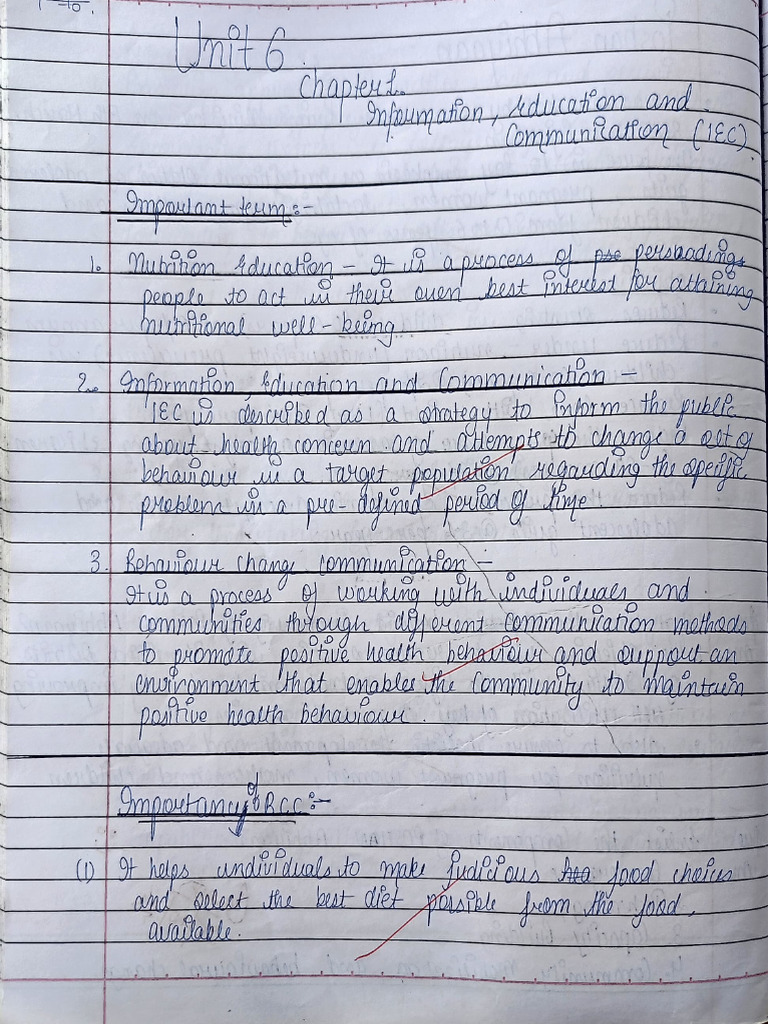 Unit 6
Chapter 1.
Information, Education and
Communication (IEC)
Important term:-
1. Nutrition Education - It is a process of persuading
people to act in their own best interest for attaining
nutritional well-being
2. Information, Education and Communication -
IEC is described as a strategy to inform the public
about health concern and attempts to change a set of
behaviour in a target population regarding the specific
problem in a pre-defined period of time.
3. Behaviour change communication -
It is a process of working with individuals and
communities through different communication methods
to promote positive health behaviour and support an
environment that enables the community to maintain
positive health behaviour.
Importancy of BCC:-
(1) It helps individuals to make judicious food choices
and select the best diet possible from the food
available.